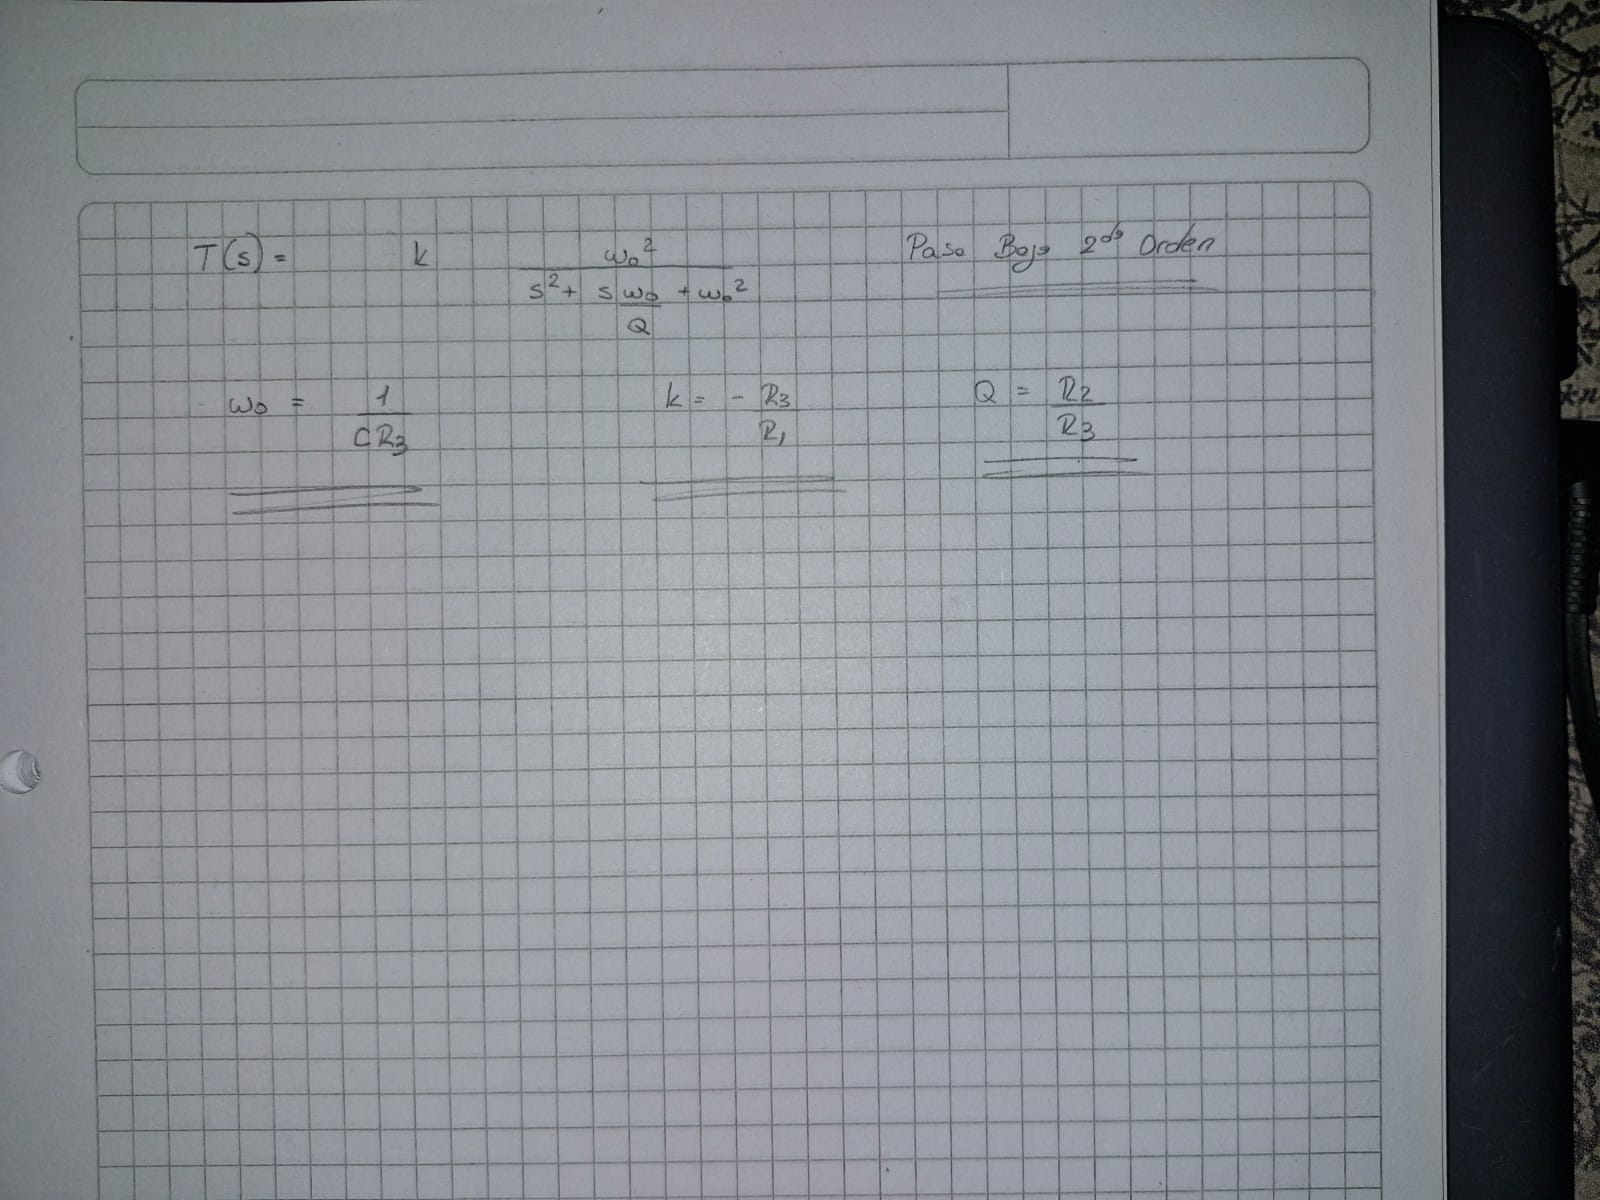 T(s) = k ω₀² / (s² + s ω₀/Q + ω₀²) Paso Bajo 2do Orden
ω₀ = 1 / CR₃ k = - R₃ / R₁ Q = R₂ / R₃